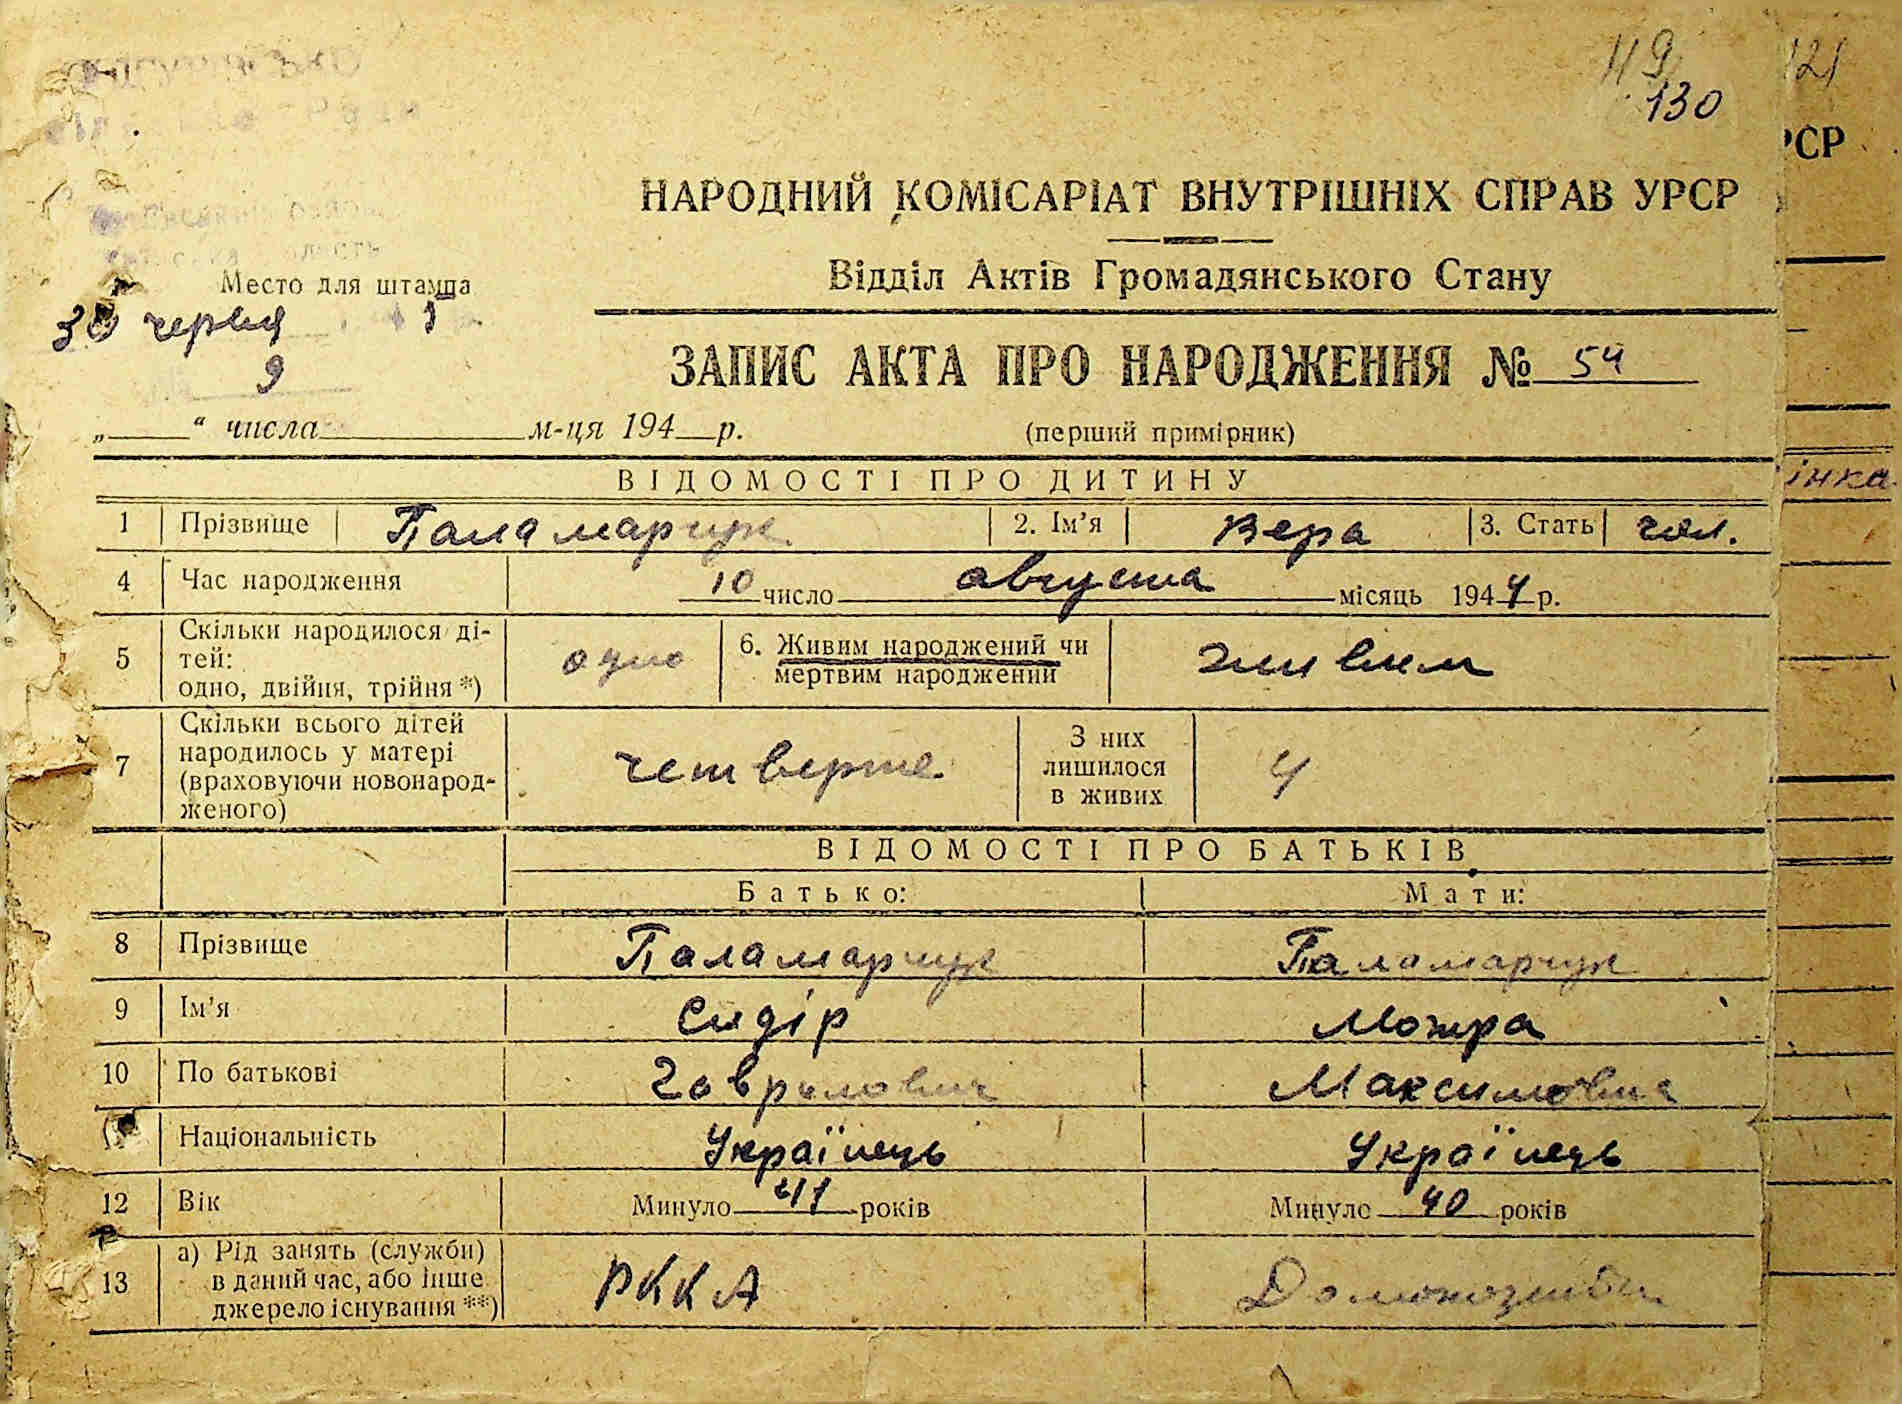 119
130
121
РСР
НАРОДНИЙ КОМІСАРІАТ ВНУТРІШНІХ СПРАВ УРСР
Відділ Актів Громадянського Стану
Место для штампа
30 червня 45
9
ЗАПИС АКТА ПРО НАРОДЖЕННЯ № 54
„ “ числа м-ця 194 р.
(перший примірник)
ВІДОМОСТІ ПРО ДИТИНУ
інка
1 Прізвище Паламарчук 2. Ім'я Вера 3. Стать чол.
4 Час народження 10 число августа місяць 1944 р.
5 Скільки народилося ді-
тей:
одно, двійня, трійня *) одно 6. Живим народжений чи
мертвим народжений живим
7 Скільки всього дітей
народилось у матері
(враховуючи новонарод-
женого) четверте З них
лишилося
в живих 4
ВІДОМОСТІ ПРО БАТЬКІВ
Батько: Мати:
8 Прізвище Паламарчук Паламарчук
9 Ім'я Сидір Мотра
10 По батькові Гаврилович Максимовна
Національність Українець Українець
12 Вік Минуло 41 років Минуло 40 років
13 а) Рід занять (служби)
в даний час, або інше
джерело існування **) РККА